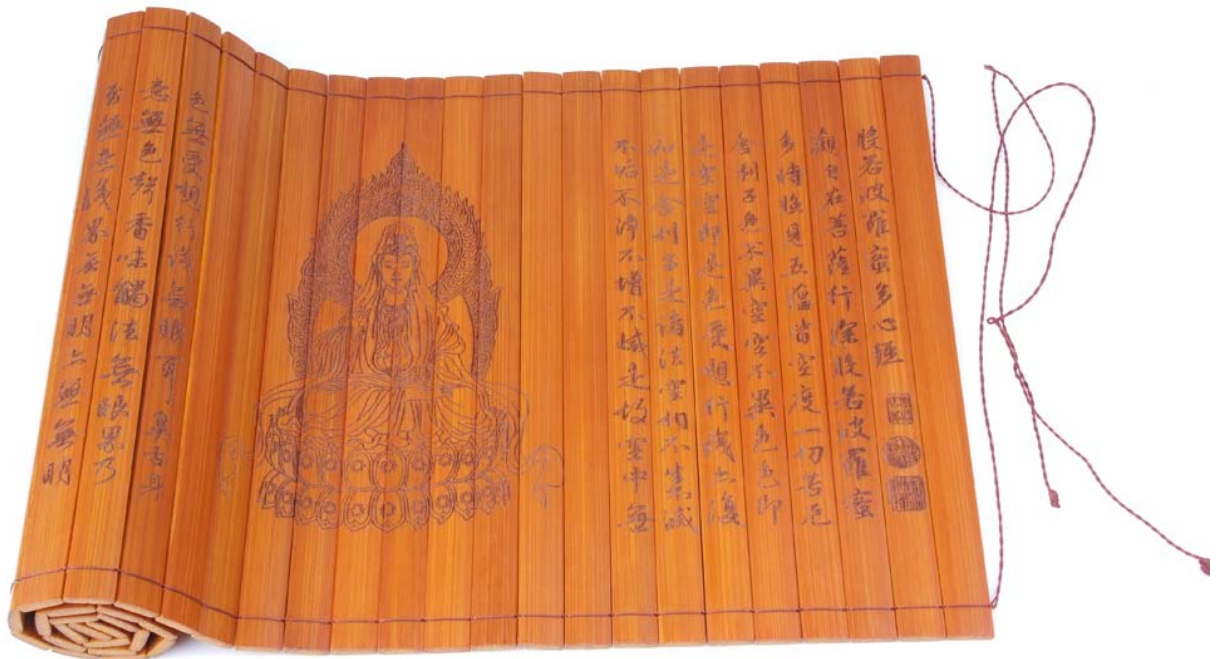 般若波羅蜜多心經
觀自在菩薩行深般若波羅蜜
多時照見五蘊皆空度一切苦厄
舍利子色不異空空不異色色即
是空空即是色受想行識亦復
如是舍利子是諸法空相不生不滅
不垢不淨不增不減是故空中無
色無受想行識無眼耳鼻舌身
意無色聲香味觸法無眼界乃
至無意識界無無明亦無無明